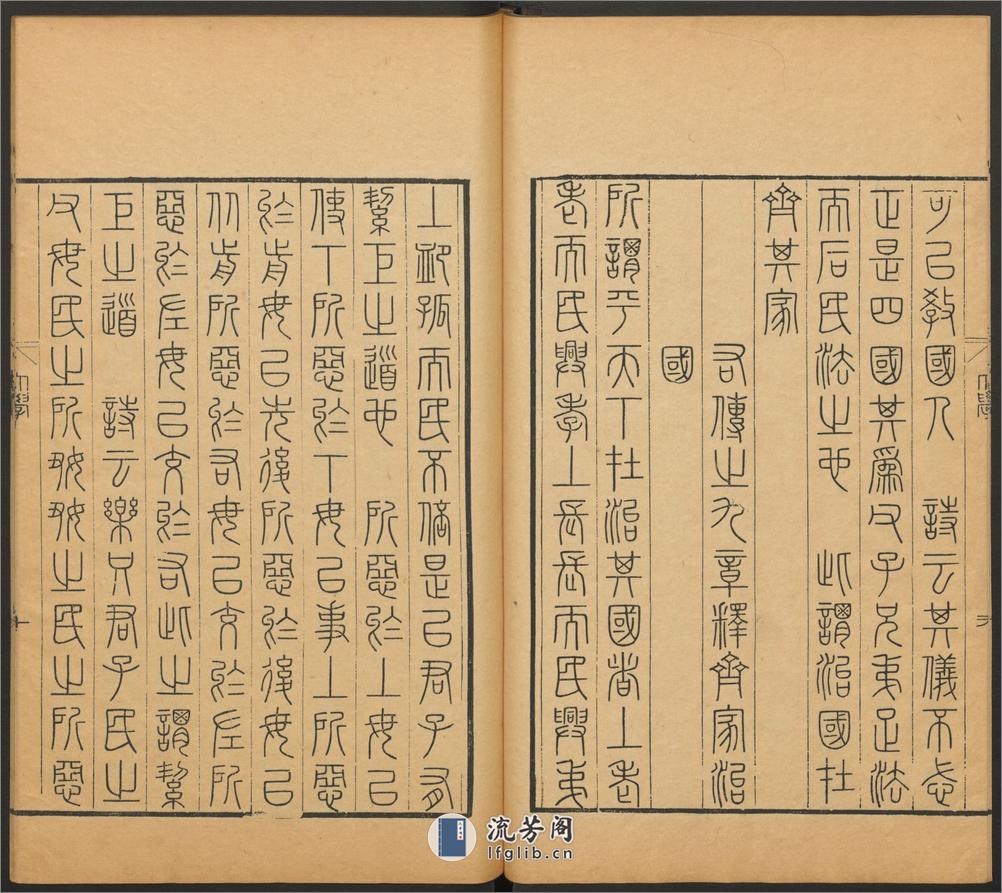 大學
可以教國人 詩云其儀不忒
正是四國其為父子兄弟足法
而后民法之也 此謂治國在
齊其家
右傳之九章釋齊家治
國
所謂平天下在治其國者上老
老而民興孝上長長而民興弟
上卹孤而民不倍是以君子有
絜矩之道也 所惡於上毋以
使下所惡於下毋以事上所惡
於前毋以先後所惡於後毋以
從前所惡於右毋以交於左所
惡於左毋以交於右此之謂絜
矩之道 詩云樂只君子民之
父母民之所好好之民之所惡
大學
流芳阁
lfglib.cn